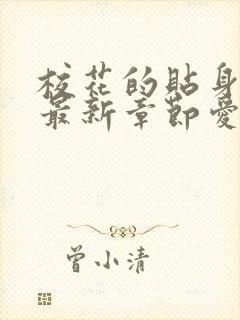 校花的贴身
最新章節愛
曾小清